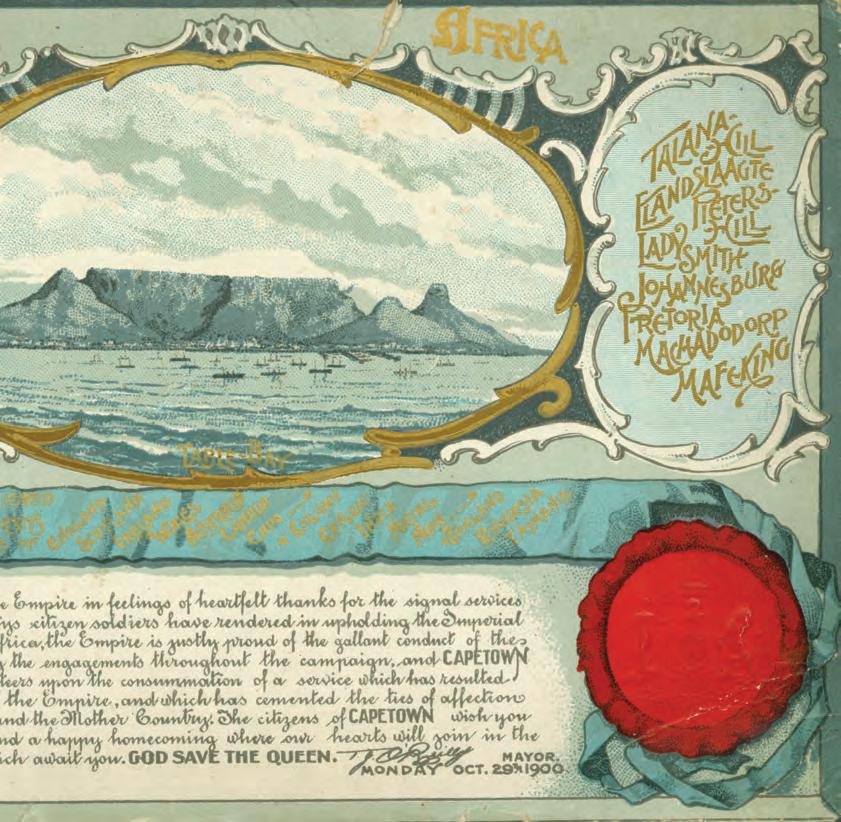 AFRICA
TALANA-
HILL
ELANDSLAAGTE
PIETERS-
HILL
LADYSMITH
JOHANNESBURG
PRETORIA
MACHADODORP
MAFEKING
TABLE-BAY
ENGLAND
SCOTLAND
IRELAND
WALES
AUSTRALIA
CANADA
CAPE
COLONY
CEYLON
INDIA
NATAL
NEW
ZEALAND
RHODESIA
TASMANIA
e Empire in feelings of heartfelt thanks for the signal services
citizen soldiers have rendered in upholding the Imperial
frica, the Empire is justly proud of the gallant conduct of the
g the engagements throughout the campaign, and CAPETOWN
teers upon the consummation of a service which has resulted
the Empire, and which has cemented the ties of affection
and the Mother Country. The citizens of CAPETOWN wish you
nd a happy homecoming where our hearts will join in the
ich await you. GOD SAVE THE QUEEN.
MAYOR.
MONDAY OCT. 29th 1900